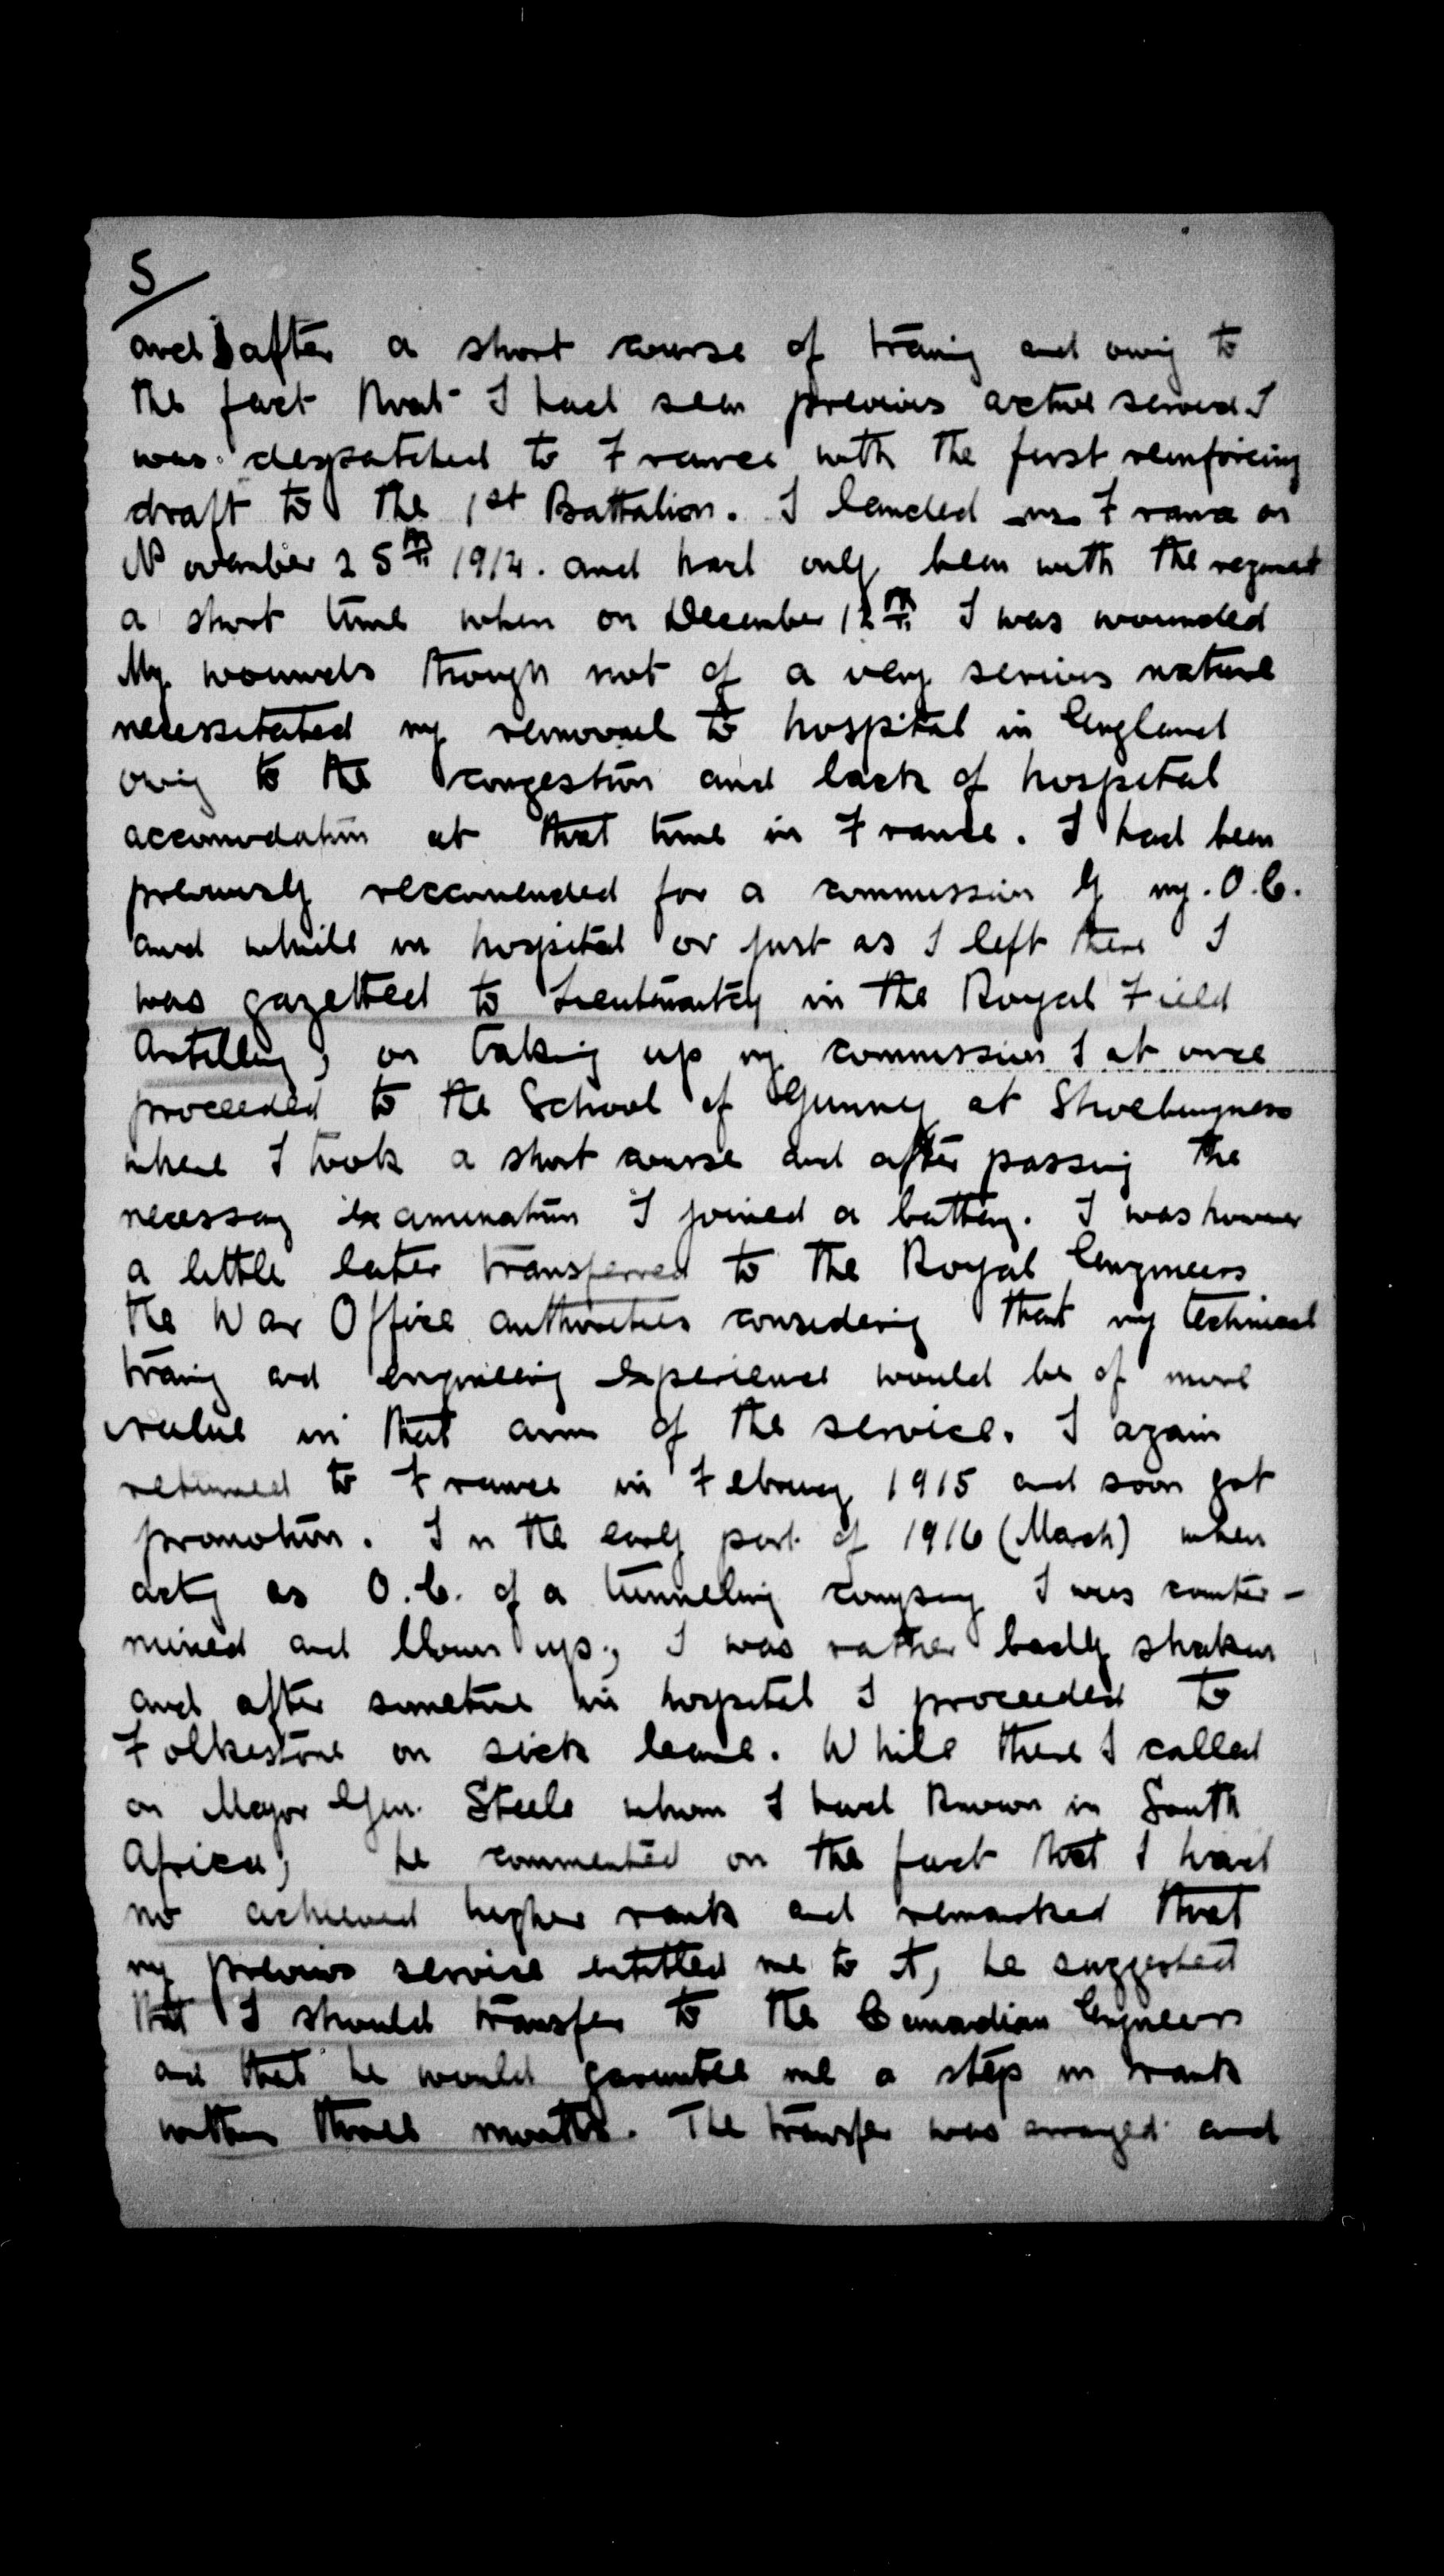 5
and after a short course of training and owing to
the fact that I had seen previous active served I
was despatched to France with the first reinforcing
draft to the 1st Battalion. I landed in France on
November 25th 1914. and had only been with the regiment
a short time when on December 12th I was wounded
My wounds though not of a very serious nature
necessitated my removal to hospital in England
owing to the congestion and lack of hospital
accomodation at that time in France. I had been
previously reccomended for a commission by my O.C.
and while in hospital or just as I left there I
was gazetted to Lieutenantcy in the Royal Field
Artillery; on taking up my commission I at once
proceeded to the School of Gunnery at Shoeburyness
where I took a short course and after passing the
necessary examination I joined a battery. I was however
a little later transferred to the Royal Engineers
the War Office authorities considering that my technical
training and engineering experience would be of more
value in that arm of the service. I again
returned to France in February 1915 and soon got
promotion. In the early part of 1916 (March) when
acting as O.C. of a tunneling company I was counter-
mined and blown up; I was rather badly shaken
and after sometime in hospital I proceeded to
Folkestone on sick leave. While there I called
on Major Gen. Steele whom I had known in South
Africa; he commented on the fact that I had
no achieved higher rank and remarked that
my previous service entitled me to it, he suggested
that I should transfer to the Canadian Engineers
and that he would garuntee me a step in rank
within three months. The transfer was arranged and